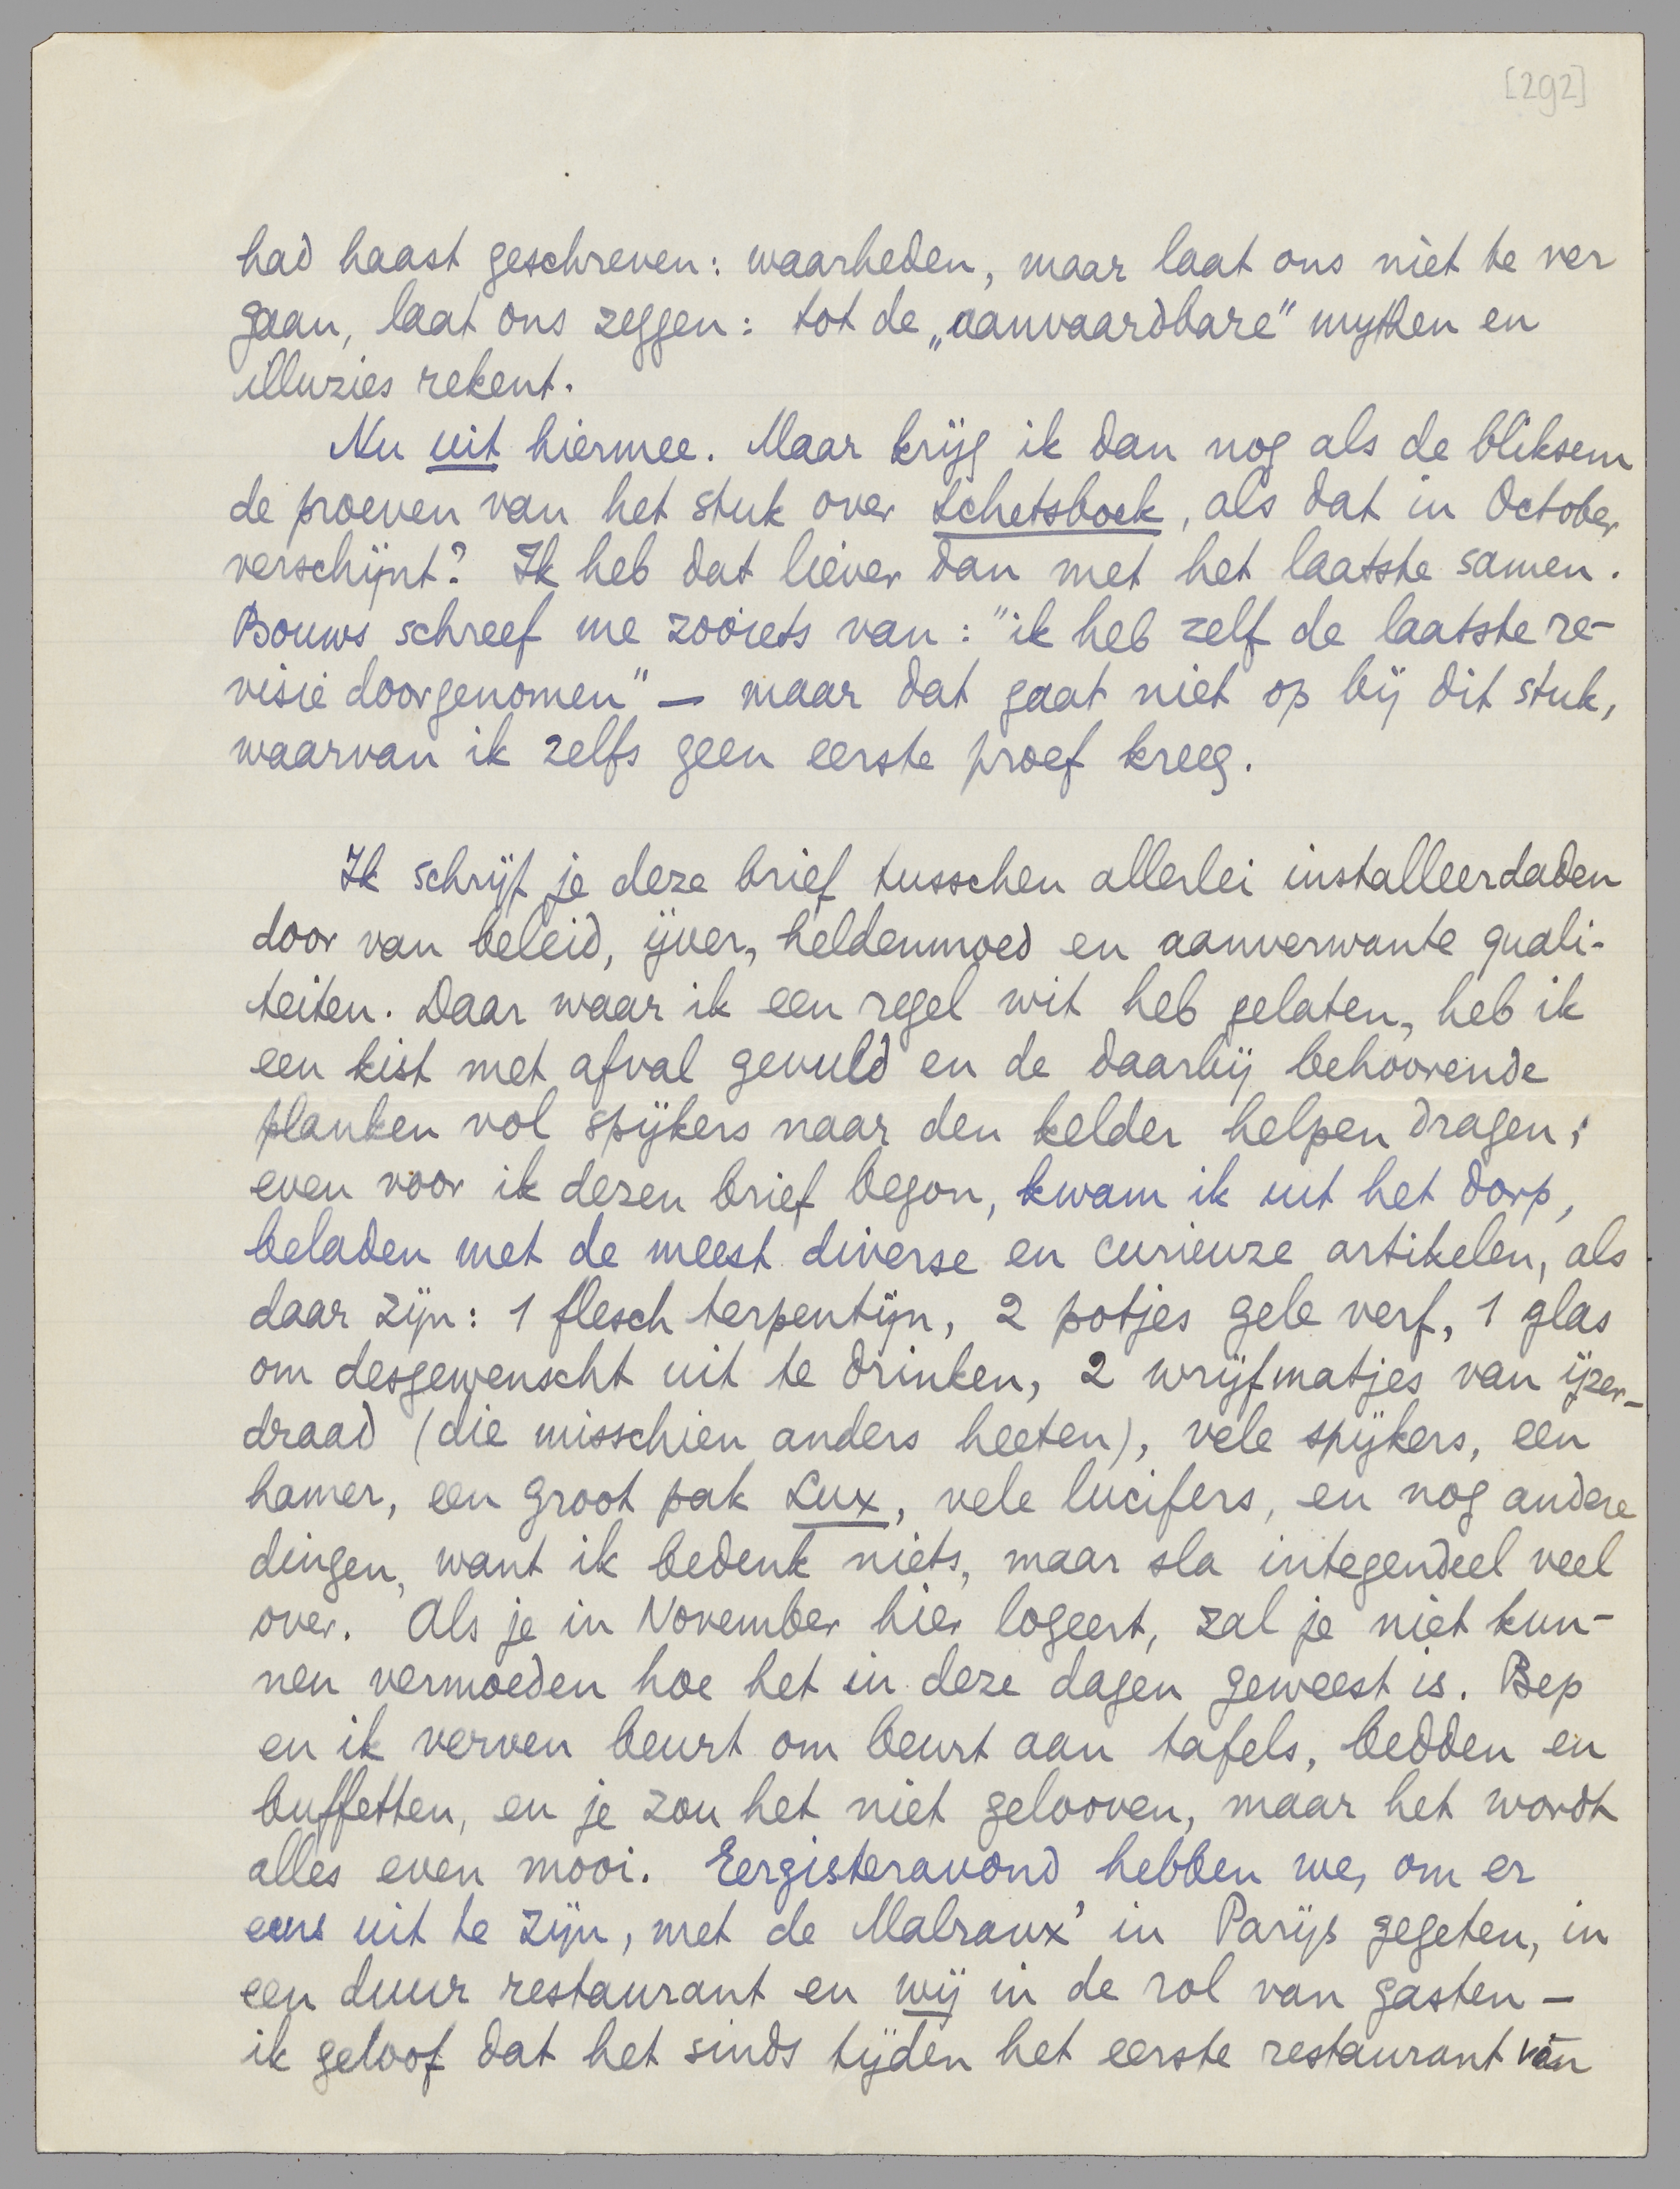 [292]
had haast geschreven: waarheden, maar laat ons niet te ver
gaan, laat ons zeggen: tot de „aanvaardbare" mythen en
illuzies rekent.
Nu uit hiermee. Maar krijg ik dan nog als de bliksem
de proeven van het stuk over Schetsboek, als dat in October
verschijnt? Ik heb dat liever dan met het laatste samen.
Bouws schreef me zooiets van: "ik heb zelf de laatste re-
visie doorgenomen" — maar dat gaat niet op bij dit stuk,
waarvan ik zelfs geen eerste proef kreeg.
Ik schrijf je deze brief tusschen allerlei installeerdaden
door van beleid, ijver, heldenmoed en aanverwante quali-
teiten. Daar waar ik een regel wit heb gelaten, heb ik
een kist met afval gevuld en de daarbij behoorende
planken vol spijkers naar den kelder helpen dragen;
even voor ik dezen brief begon, kwam ik uit het dorp,
beladen met de meest diverse en curieuze artikelen, als
daar zijn: 1 flesch terpentijn, 2 potjes gele verf, 1 glas
om desgewenscht uit te drinken, 2 wrijfmatjes van ijzer-
draad (die misschien anders heeten), vele spijkers, een
hamer, een groot pak Lux, vele lucifers, en nog andere
dingen, want ik bedenk niets, maar sla integendeel veel
over. Als je in November hier logeert, zal je niet kun-
nen vermoeden hoe het in deze dagen geweest is. Bep
en ik verven beurt om beurt aan tafels, bedden en
buffetten, en je zou het niet gelooven, maar het wordt
alles even mooi. Eergisteravond hebben we, om er
eens uit te zijn, met de Malraux' in Parijs gegeten, in
een duur restaurant en wij in de rol van gasten —
ik geloof dat het sinds tijden het eerste restaurant van